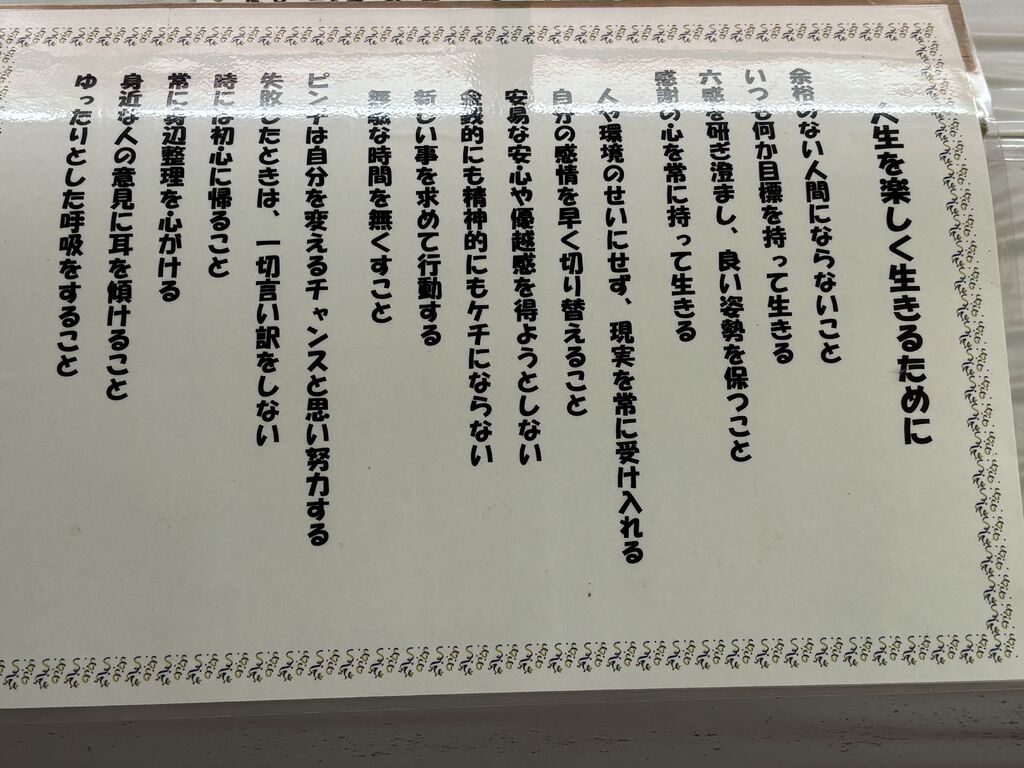 人生を楽しく生きるために
余裕のない人間にならないこと
いつも何か目標を持って生きる
六感を研ぎ澄まし、良い姿勢を保つこと
感謝の心を常に持って生きる
人や環境のせいにせず、現実を常に受け入れる
自分の感情を早く切り替えること
安易な安心や優越感を得ようとしない
金銭的にも精神的にもケチにならない
新しい事を求めて行動する
無駄な時間を無くすこと
ピンチは自分を変えるチャンスと思い努力する
失敗したときは、一切言い訳をしない
時には初心に帰ること
常に身辺整理を心がける
身近な人の意見に耳を傾けること
ゆったりとした呼吸をすること